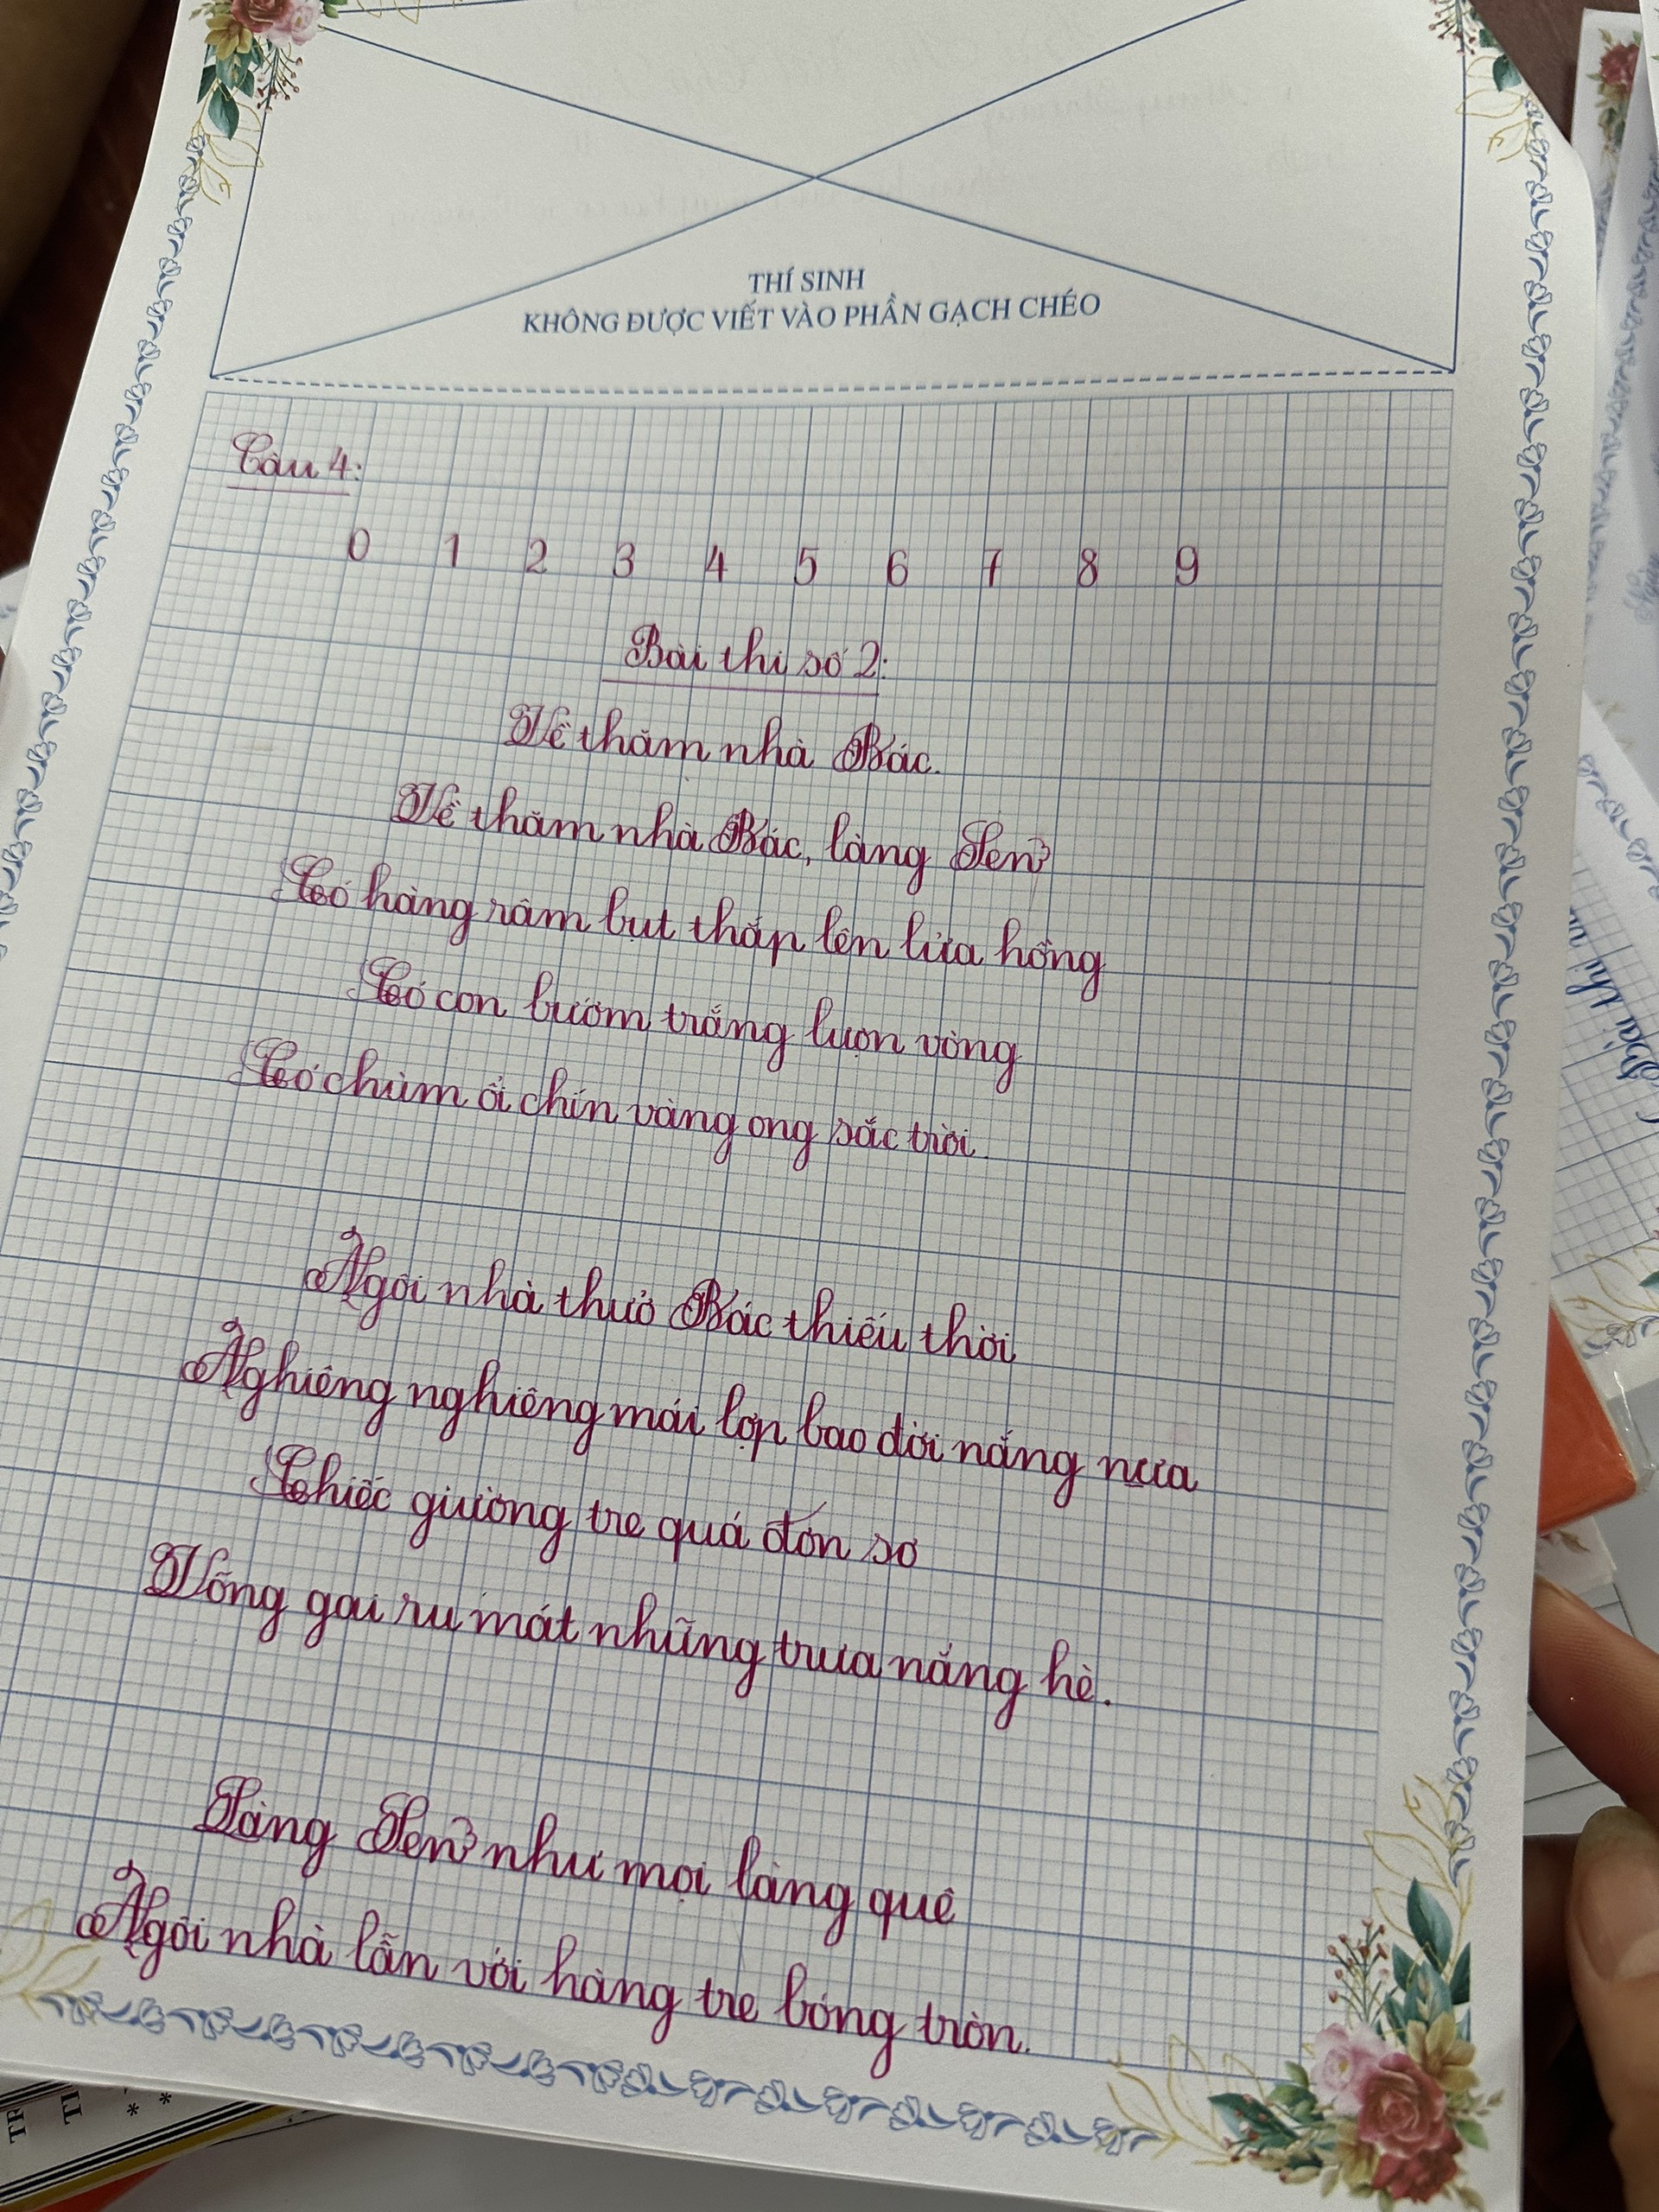 THÍ SINH
KHÔNG ĐƯỢC VIẾT VÀO PHẦN GẠCH CHÉO
Câu 4:
0 1 2 3 4 5 6 7 8 9
Bài thi số 2:
Về thăm nhà Bác.
Về thăm nhà Bác, làng Sen
Có hàng râm bụt thắp lên lửa hồng
Có con bướm trắng lượn vòng
Có chùm ổi chín vàng ong sắc trời.
Ngôi nhà thuở Bác thiếu thời
Nghiêng nghiêng mái lợp bao đời nắng nưa
Chiếc giường tre quá đơn sơ
Võng gai ru mát những trưa nắng hè.
Làng Sen như mọi làng quê
Ngôi nhà lẫn với hàng tre bóng tròn.
Bài thi